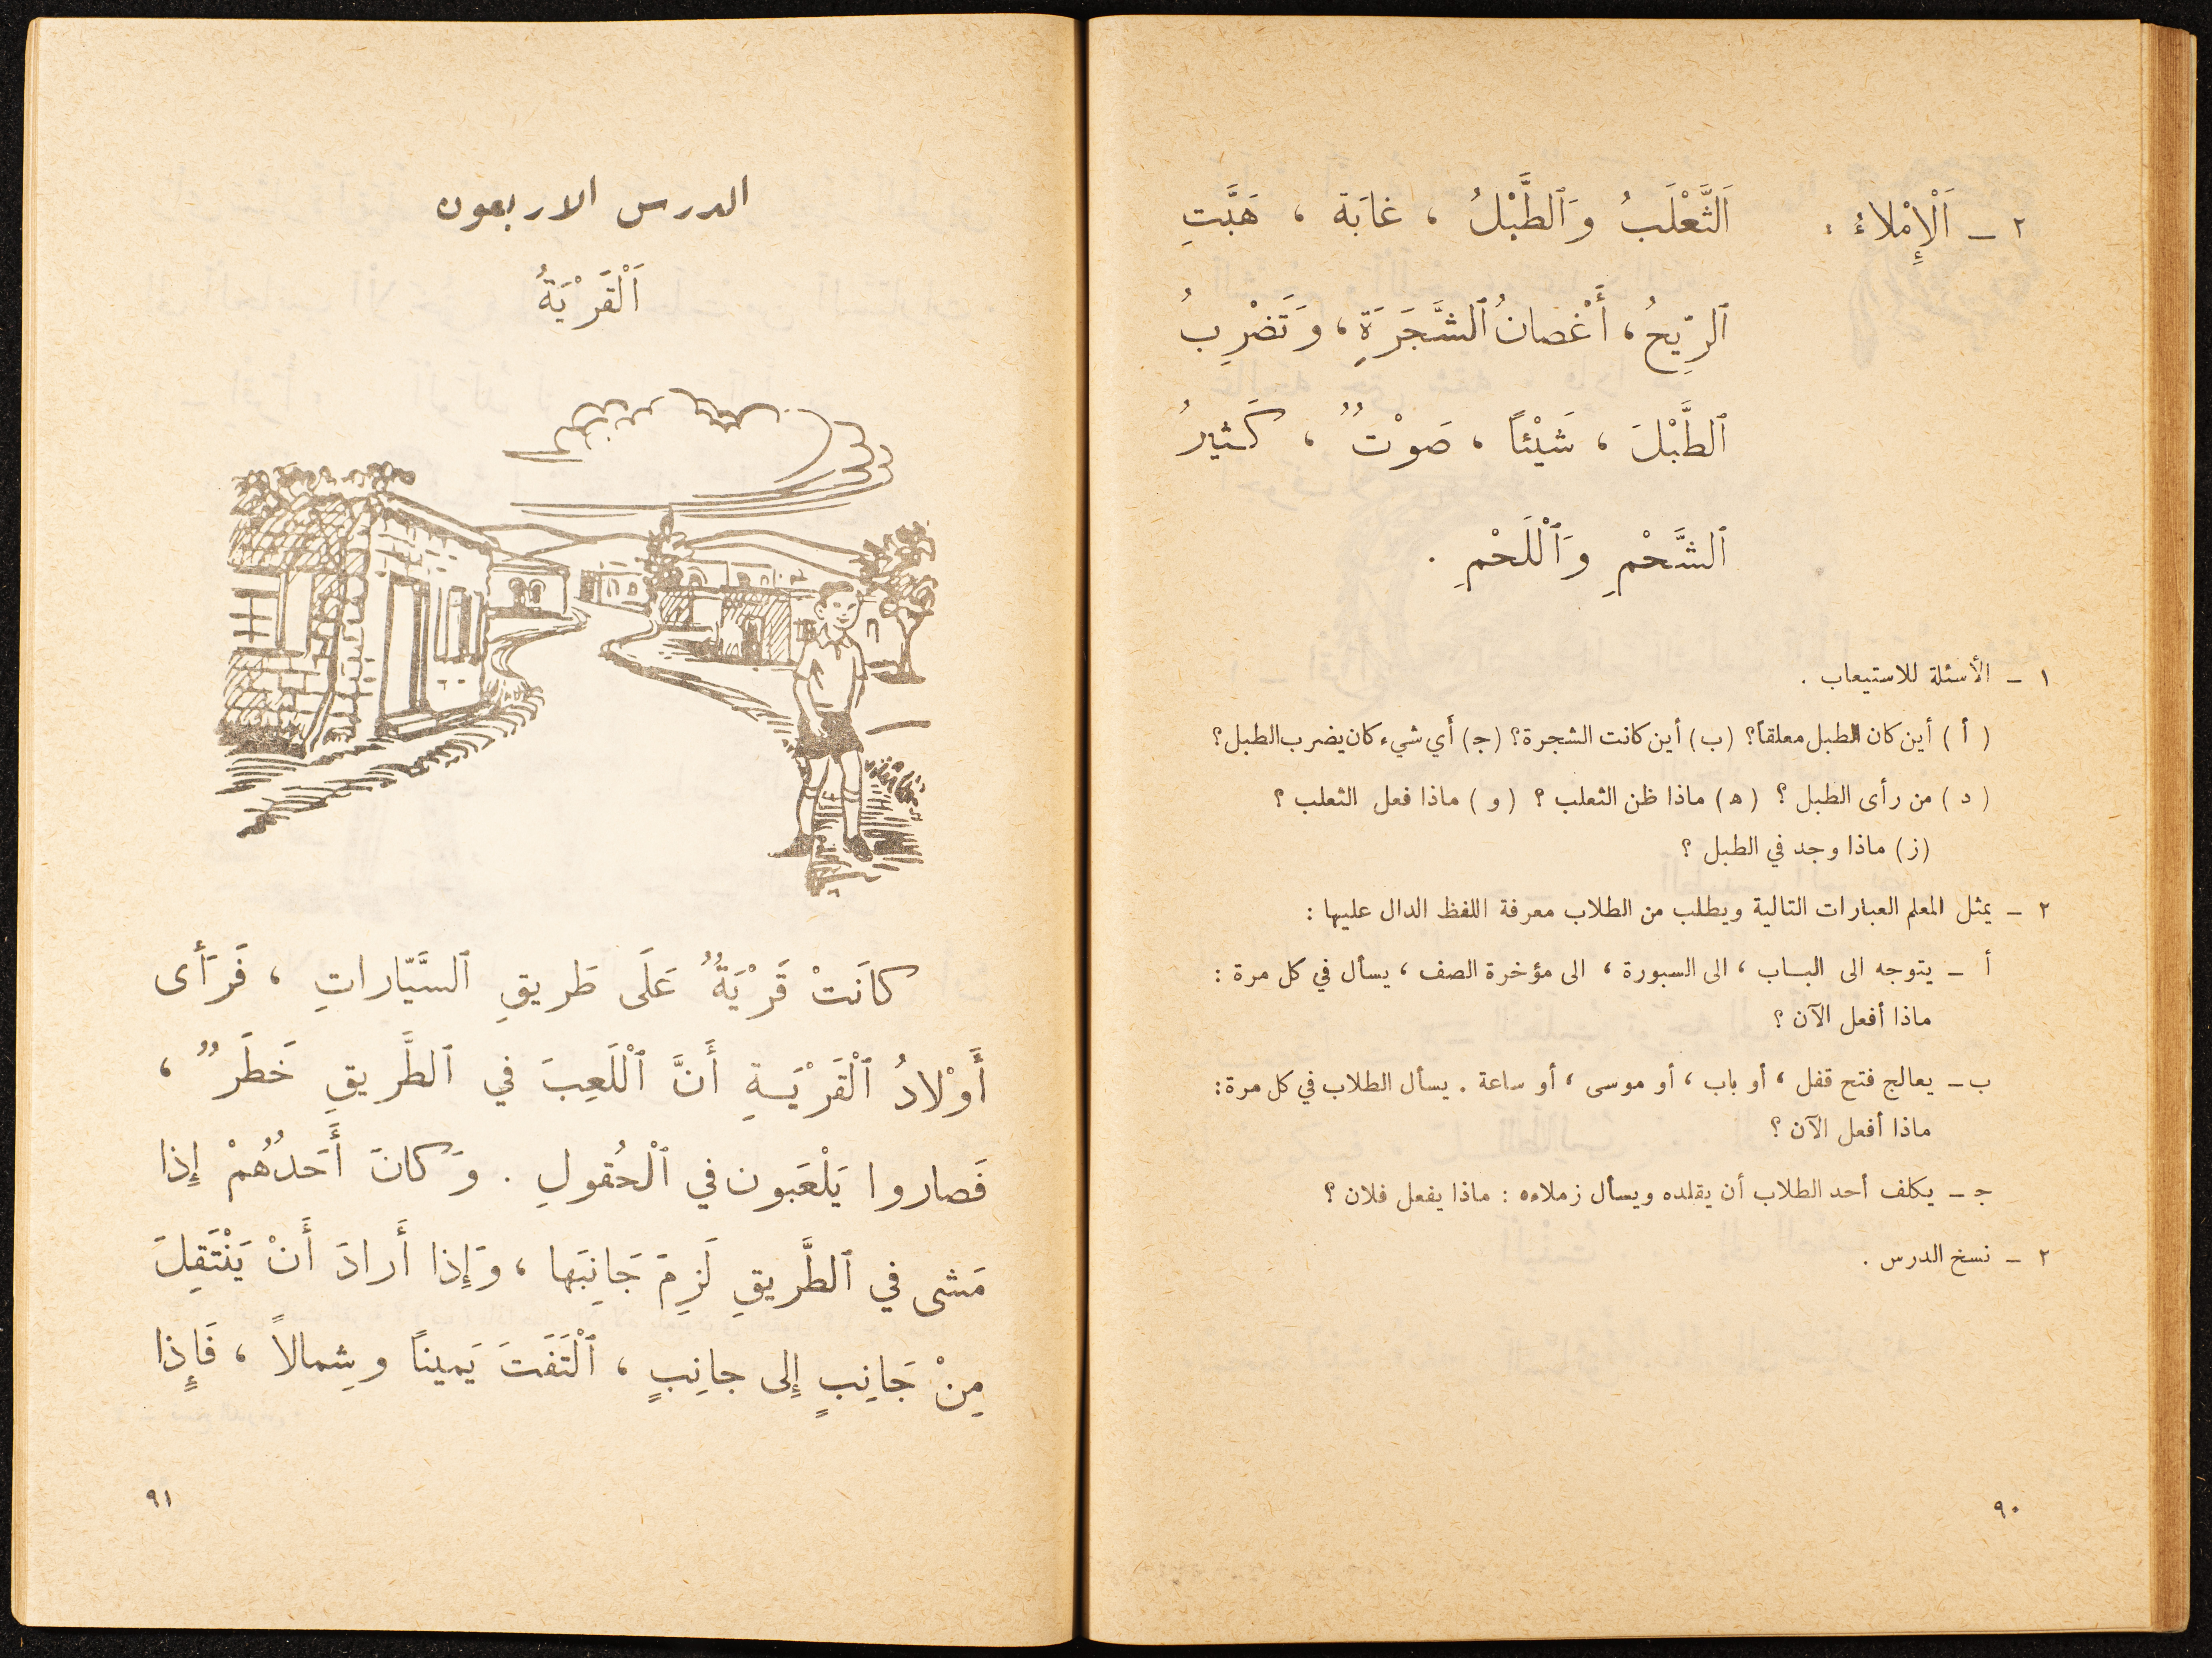 ٢ - اَلْإِمْلاءُ : اَلثَّعْلَبُ وَٱلطَّبْلُ ، غابَة ، هَبَّتِ
ٱلرِّيحُ ، أَغْصانُ ٱلشَّجَرَةِ ، وَتَضْرِبُ
ٱلطَّبْلَ ، شَيْئاً ، صَوْتٌ ، كَثيرُ
ٱلشَّحْمِ وَٱلْلَحْمِ .
١ - الأسئلة للاستيعاب .
( أ ) أين كان الطبل معلقاً؟ (ب) أين كانت الشجرة؟ (ج) أي شيء كان يضرب الطبل؟
( د ) من رأى الطبل ؟ (ه) ماذا ظن الثعلب ؟ ( و ) ماذا فعل الثعلب ؟
(ز) ماذا وجد في الطبل ؟
٢ - يمثل المعلم العبارات التالية ويطلب من الطلاب معرفة اللفظ الدال عليها :
أ - يتوجه الى الباب ، الى السبورة ، الى مؤخرة الصف ، يسأل في كل مرة :
ماذا أفعل الآن ؟
ب - يعالج فتح قفل ، أو باب ، أو موسى ، أو ساعة . يسأل الطلاب في كل مرة :
ماذا أفعل الآن ؟
ج - يكلف أحد الطلاب أن يقلده ويسأل زملاءه : ماذا يفعل فلان ؟
٢ - نسخ الدرس .
٩٠
الدرس الاربعون
اَلْقَرْيَةُ
كانَتْ قَرْيَةٌ عَلَى طَريقِ ٱلسَّيّاراتِ ، فَرَأَى
أَوْلادُ ٱلْقَرْيَةِ أَنَّ ٱلْلَعِبَ في ٱلطَّريقِ خَطَرٌ ،
فَصاروا يَلْعَبون في ٱلْحُقولِ . وَكانَ أَحَدُهُمْ إِذا
مَشى في ٱلطَّريقِ لَزِمَ جَانِبَها ، وَإِذا أَرادَ أَنْ يَنْتَقِلَ
مِنْ جَانِبٍ إِلى جانِبٍ ، ٱلْتَفَتَ يَميناً وشِمالاً ، فَإِذا
٩١